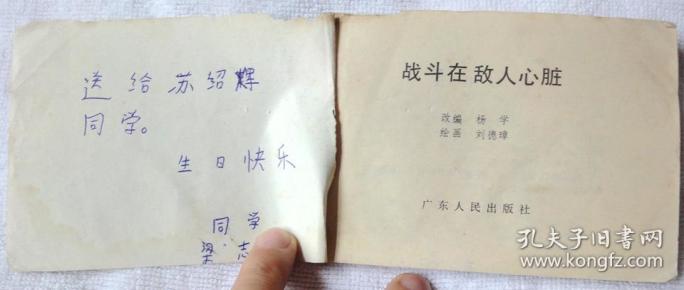 送给苏绍辉
同学。
生日快乐
同学
梁志
战斗在敌人心脏
改编 杨学
绘画 刘德璋
广东人民出版社
孔夫子旧书网
www.kongfz.com